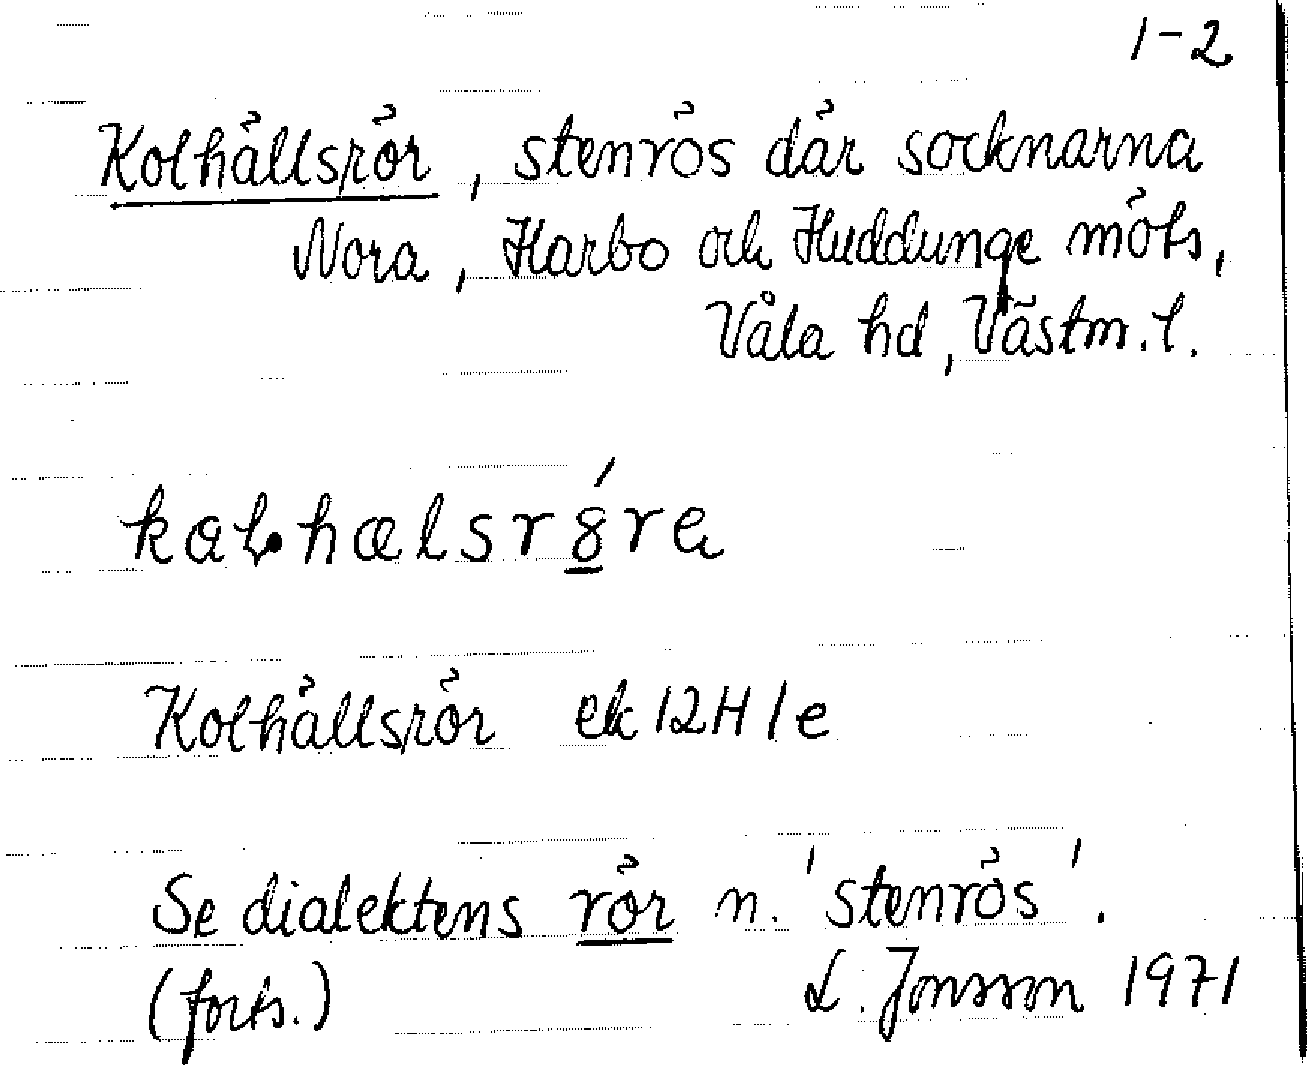 1-2
Kolhällsrör, stenrös där socknarna
Nora, Harbo och Huddunge möts,
Våla hd, Västm. l.
Kolhällsrör ek 12H 1e
Se dialektens rör n. 'stenrös'.
(forts.) L. Jonsson 1971